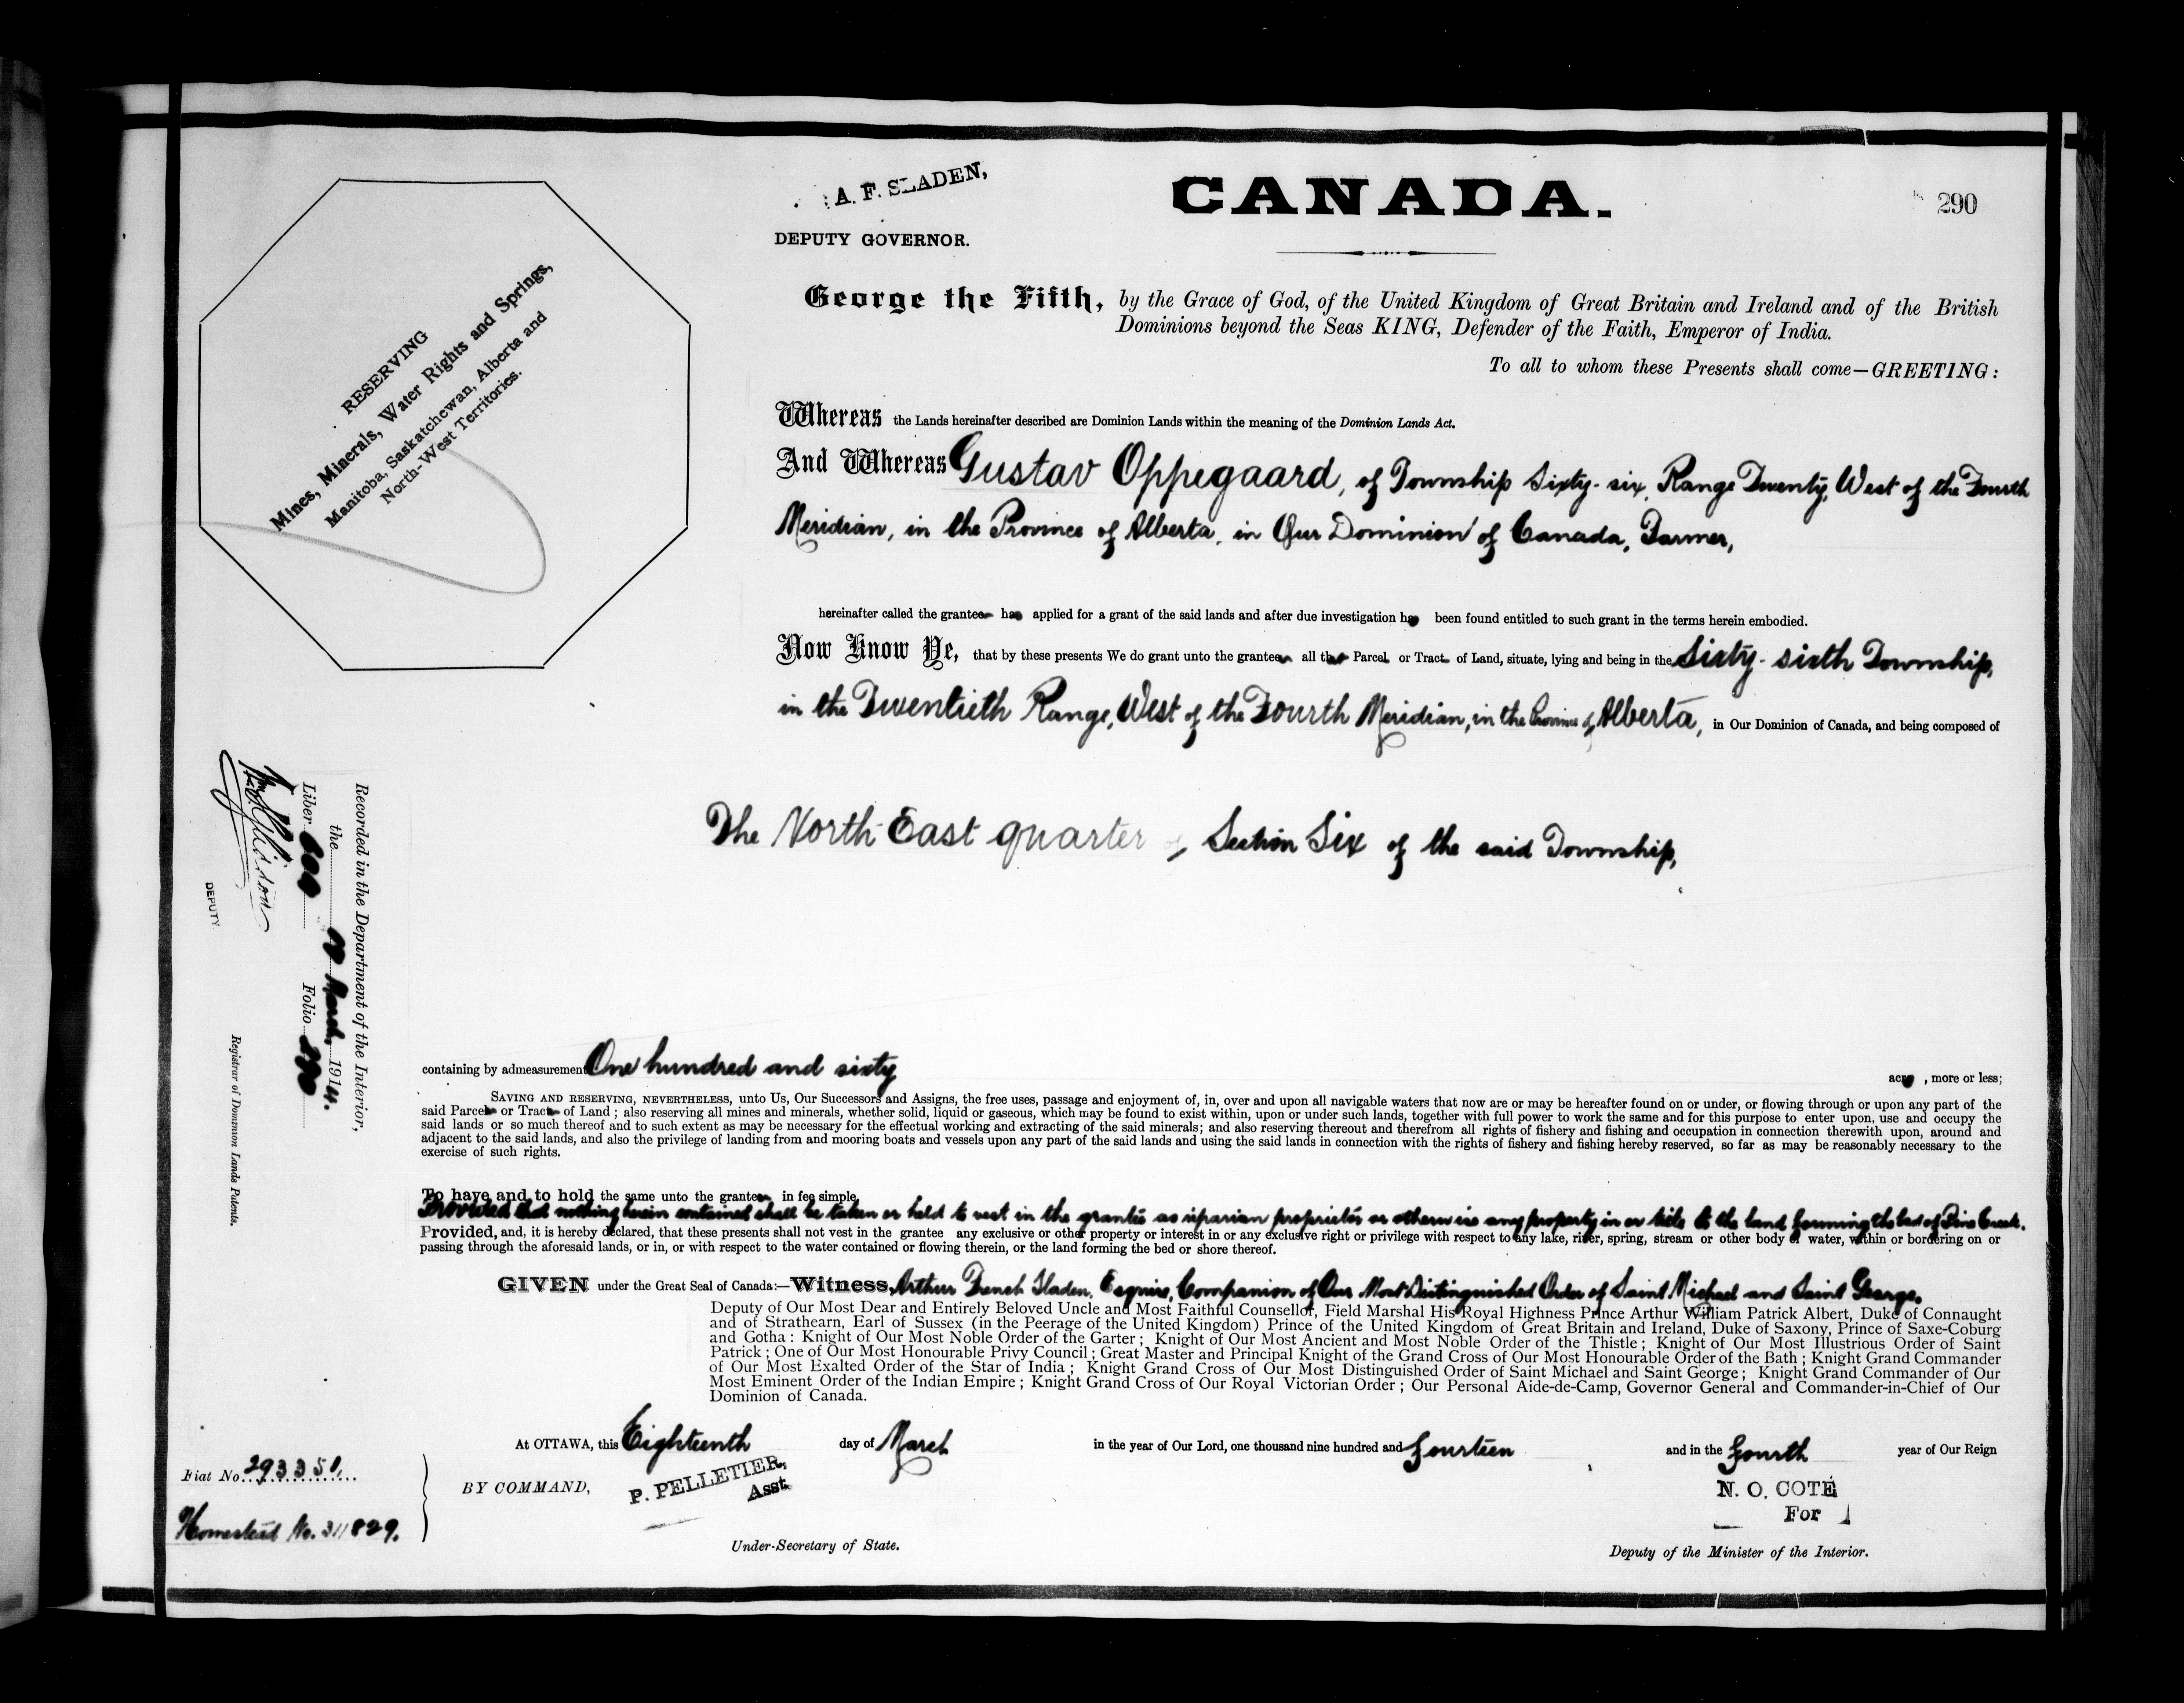 A. F. SLADEN,
DEPUTY GOVERNOR.
CANADA.
290
RESERVING
Mines, Minerals, Water Rights and Springs,
Manitoba, Saskatchewan, Alberta and
North-West Territories.
George the Fifth, by the Grace of God, of the United Kingdom of Great Britain and Ireland and of the British
Dominions beyond the Seas KING, Defender of the Faith, Emperor of India.
To all to whom these Presents shall come—GREETING:
Whereas the Lands hereinafter described are Dominion Lands within the meaning of the Dominion Lands Act.
And Whereas Gustav Oppegaard, of Township Sixty-six, Range Twenty, West of the Fourth
Meridian, in the Province of Alberta, in Our Dominion of Canada, Farmer,
hereinafter called the grantee has applied for a grant of the said lands and after due investigation has been found entitled to such grant in the terms herein embodied.
Now Know Ye, that by these presents We do grant unto the grantee all that Parcel or Tract of Land, situate, lying and being in the Sixty-sixth Township,
in the Twentieth Range, West of the Fourth Meridian, in the Province of Alberta, in Our Dominion of Canada, and being composed of
The North East quarter of Section Six of the said Township,
Recorded in the Department of the Interior,
the March, 1914.
Liber Folio 290
DEPUTY
Registrar of Dominion Lands Patents.
containing by admeasurement One hundred and sixty acres, more or less;
SAVING AND RESERVING, NEVERTHELESS, unto Us, Our Successors and Assigns, the free uses, passage and enjoyment of, in, over and upon all navigable waters that now are or may be hereafter found on or under, or flowing through or upon any part of the
said Parcel or Tract of Land; also reserving all mines and minerals, whether solid, liquid or gaseous, which may be found to exist within, upon or under such lands, together with full power to work the same and for this purpose to enter upon, use and occupy the
said lands or so much thereof and to such extent as may be necessary for the effectual working and extracting of the said minerals; and also reserving thereout and therefrom all rights of fishery and fishing and occupation in connection therewith upon, around and
adjacent to the said lands, and also the privilege of landing from and mooring boats and vessels upon any part of the said lands and using the said lands in connection with the rights of fishery and fishing hereby reserved, so far as may be reasonably necessary to the
exercise of such rights.
To have and to hold the same unto the grantee in fee simple.
Provided that nothing herein contained shall be taken or held to vest in the grantee as riparian proprietor or otherwise any property in or title to the land forming the bed of Pine Creek.
Provided, and, it is hereby declared, that these presents shall not vest in the grantee any exclusive or other property or interest in or any exclusive right or privilege with respect to any lake, river, spring, stream or other body of water, within or bordering on or
passing through the aforesaid lands, or in, or with respect to the water contained or flowing therein, or the land forming the bed or shore thereof.
GIVEN under the Great Seal of Canada:—Witness, Arthur French Sladen, Esquire, Companion of Our Most Distinguished Order of Saint Michael and Saint George,
Deputy of Our Most Dear and Entirely Beloved Uncle and Most Faithful Counsellor, Field Marshal His Royal Highness Prince Arthur William Patrick Albert, Duke of Connaught
and of Strathearn, Earl of Sussex (in the Peerage of the United Kingdom) Prince of the United Kingdom of Great Britain and Ireland, Duke of Saxony, Prince of Saxe-Coburg
and Gotha: Knight of Our Most Noble Order of the Garter; Knight of Our Most Ancient and Most Noble Order of the Thistle; Knight of Our Most Illustrious Order of Saint
Patrick; One of Our Most Honourable Privy Council; Great Master and Principal Knight of the Grand Cross of Our Most Honourable Order of the Bath; Knight Grand Commander
of Our Most Exalted Order of the Star of India; Knight Grand Cross of Our Most Distinguished Order of Saint Michael and Saint George; Knight Grand Commander of Our
Most Eminent Order of the Indian Empire; Knight Grand Cross of Our Royal Victorian Order; Our Personal Aide-de-Camp, Governor General and Commander-in-Chief of Our
Dominion of Canada.
At OTTAWA, this Eighteenth day of March in the year of Our Lord, one thousand nine hundred and fourteen and in the fourth year of Our Reign
Fiat No. 293351.
Homestead No. 311829.
BY COMMAND,
P. PELLETIER,
Asst.
Under-Secretary of State.
N. O. COTÉ
For
Deputy of the Minister of the Interior.